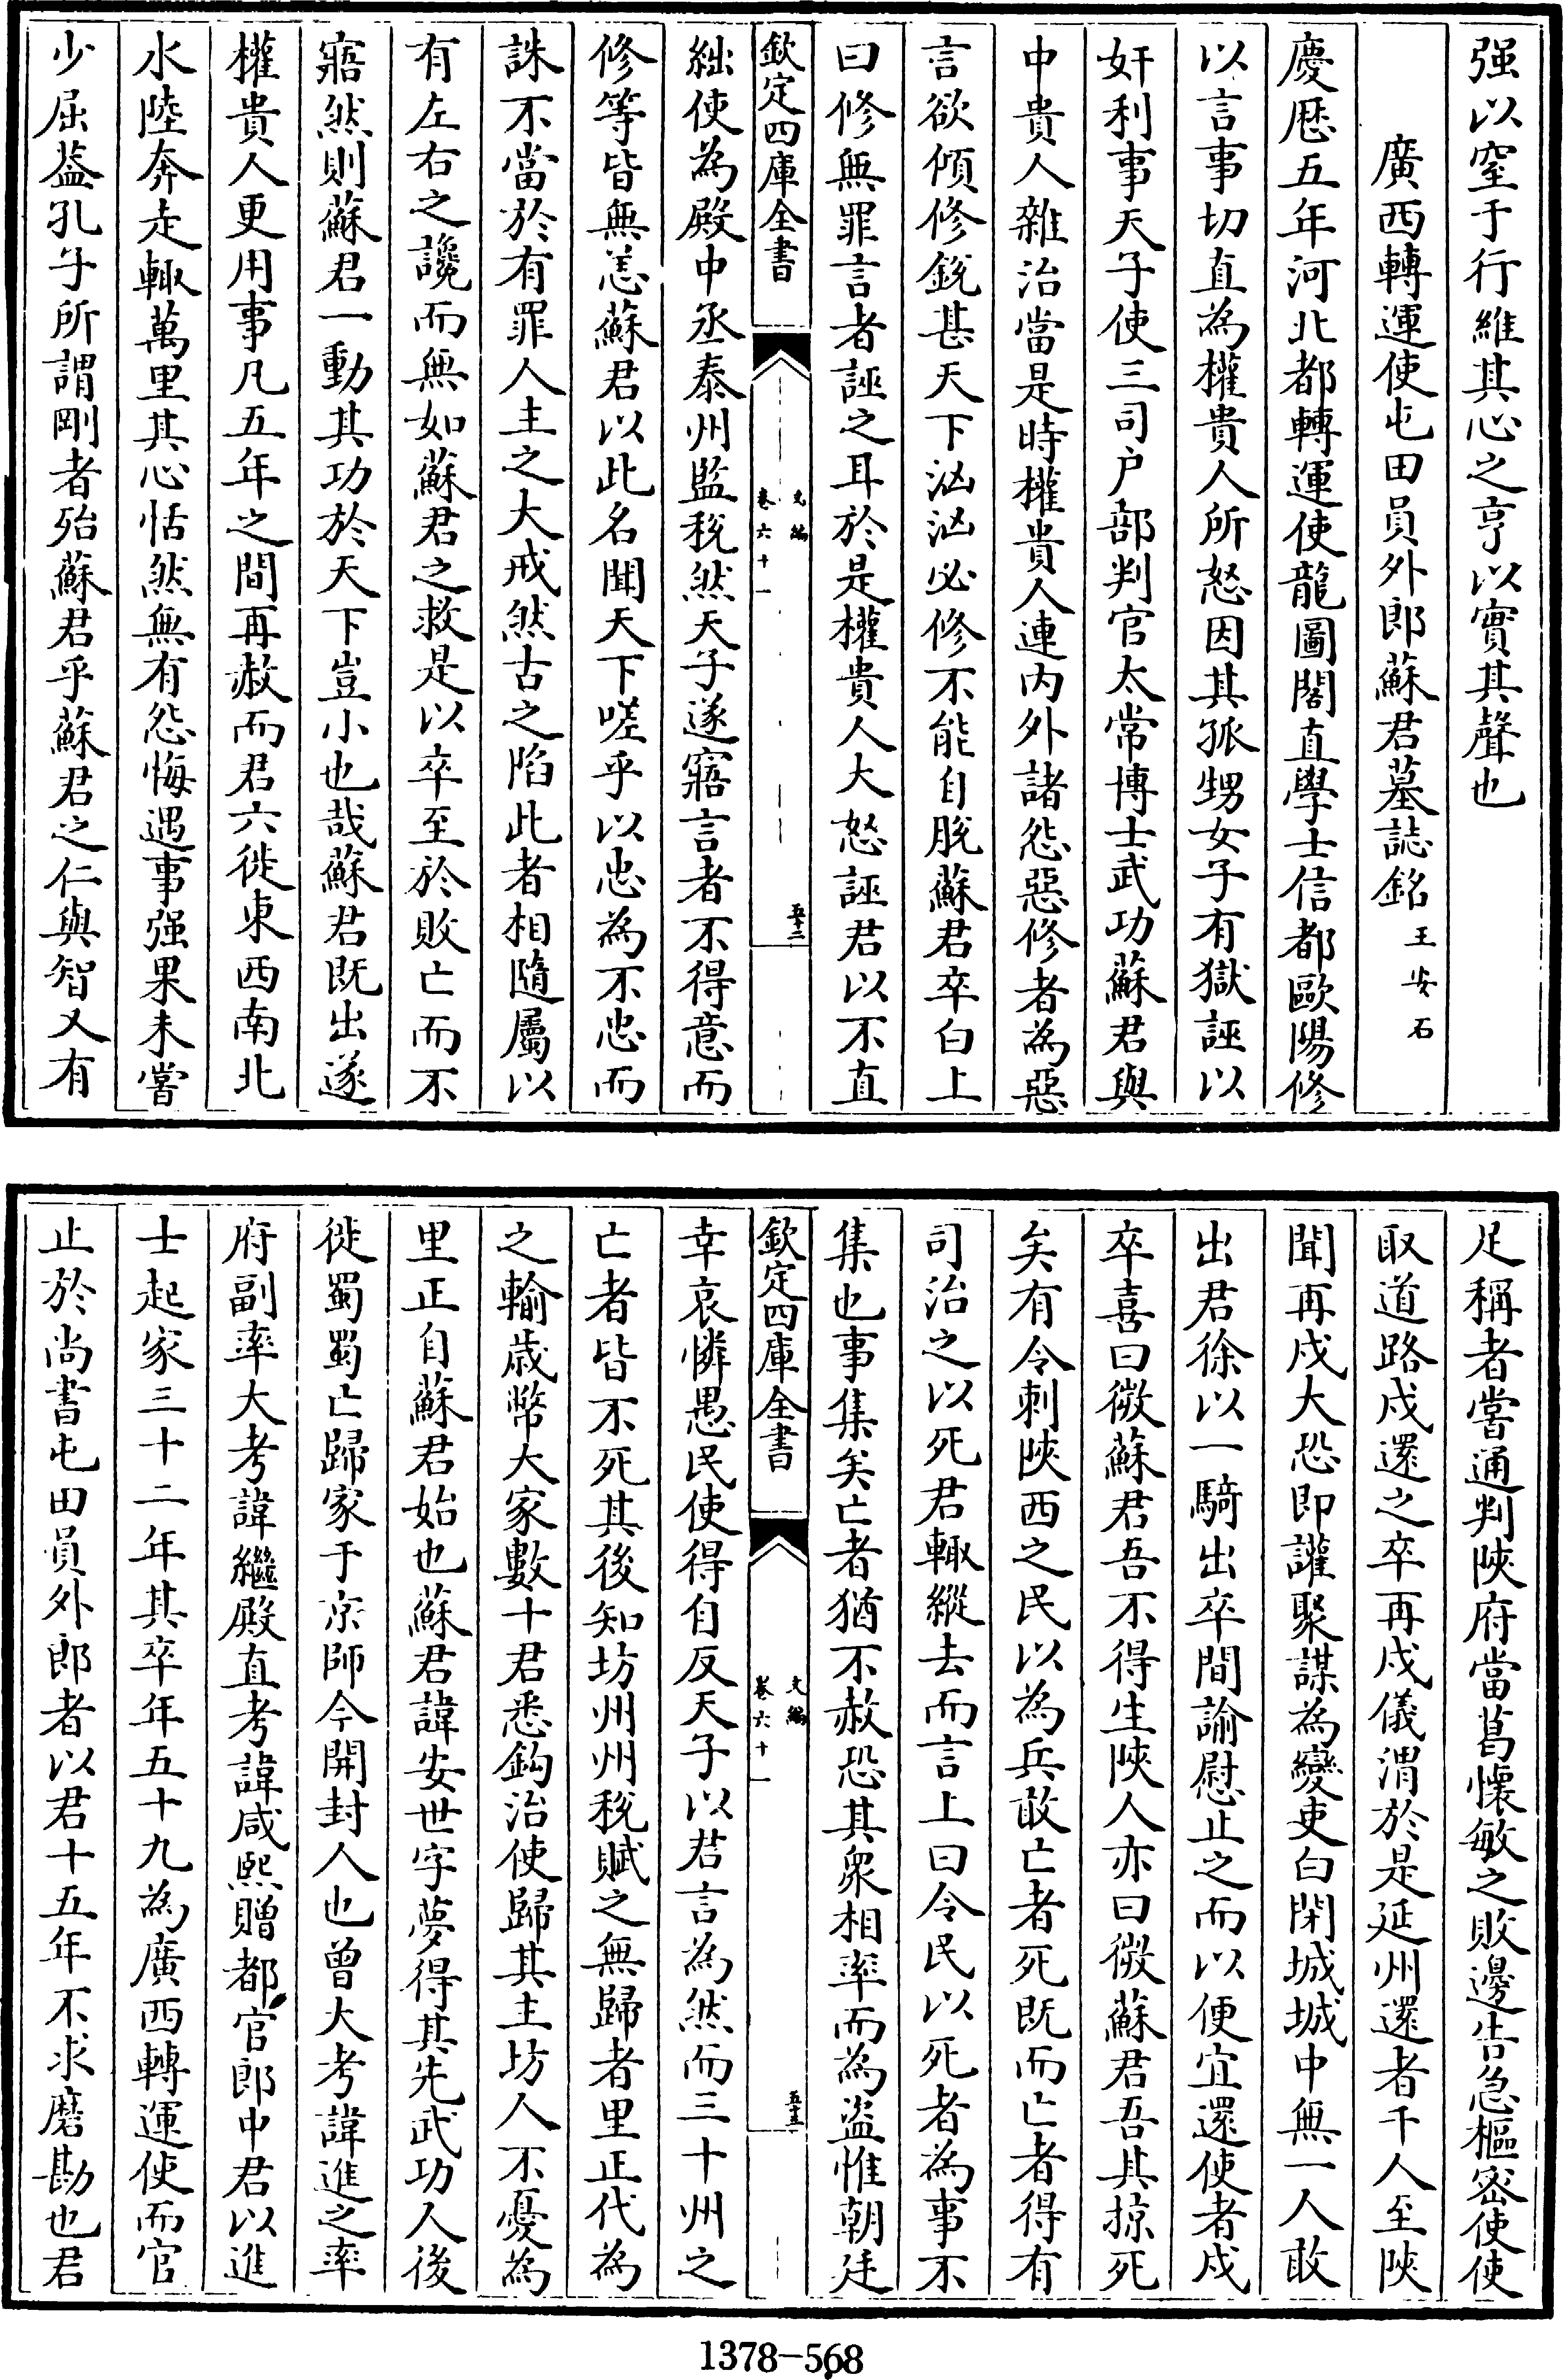 强以窒于行維其心之亨以實其聲也
廣西轉運使屯田員外郎蘇君墓誌銘 王安石
慶厯五年河北都轉運使龍圖閣直學士信都歐陽修
以言事切直為權貴人所怒因其孤甥女子有獄誣以
奸利事天子使三司户部判官太常博士武功蘇君與
中貴人雜治當是時權貴人連内外諸怨惡修者為惡
言欲傾修銳甚天下洶洶必修不能自脫蘇君卒白上
曰修無罪言者誣之耳於是權貴人大怒誣君以不直
欽定四庫全書
文編
卷六十一
五十二
絀使為殿中丞泰州監稅然天子遂寤言者不得意而
修等皆無恙蘇君以此名聞天下嗟乎以忠為不忠而
誅不當於有罪人主之大戒然古之陷此者相隨屬以
有左右之讒而無如蘇君之救是以卒至於敗亡而不
寤然則蘇君一動其功於天下豈小也哉蘇君既出遂
權貴人更用事凡五年之間再赦而君六徙東西南北
水陸奔走輙萬里其心恬然無有怨悔遇事强果未嘗
少屈葢孔子所謂剛者殆蘇君乎蘇君之仁與智又有
足稱者嘗通判陜府當葛懷敏之敗邊告急樞密使使
取道路戍還之卒再戍儀渭於是延州還者千人至陜
聞再戍大恐即讙聚謀為變吏白閉城城中無一人敢
出君徐以一騎出卒間諭慰止之而以便宜還使者戍
卒喜曰微蘇君吾不得生陜人亦曰微蘇君吾其掠死
矣有令刺陜西之民以為兵敢亡者死既而亡者得有
司治之以死君輙縱去而言上曰令民以死者為事不
集也事集矣亡者猶不赦恐其衆相率而為盗惟朝廷
欽定四庫全書
文編
卷六十一
五十三
幸哀憐愚民使得自反天子以君言為然而三十州之
亡者皆不死其後知坊州州稅賦之無歸者里正代為
之輸歲幣大家數十君悉鈎治使歸其主坊人不憂為
里正自蘇君始也蘇君諱安世字夢得其先武功人後
徙蜀蜀亡歸家于京師今開封人也曾大考諱進之率
府副率大考諱繼殿直考諱咸熙贈都官郎中君以進
士起家三十二年其卒年五十九為廣西轉運使而官
止於尚書屯田員外郎者以君十五年不求磨勘也君
1378-568